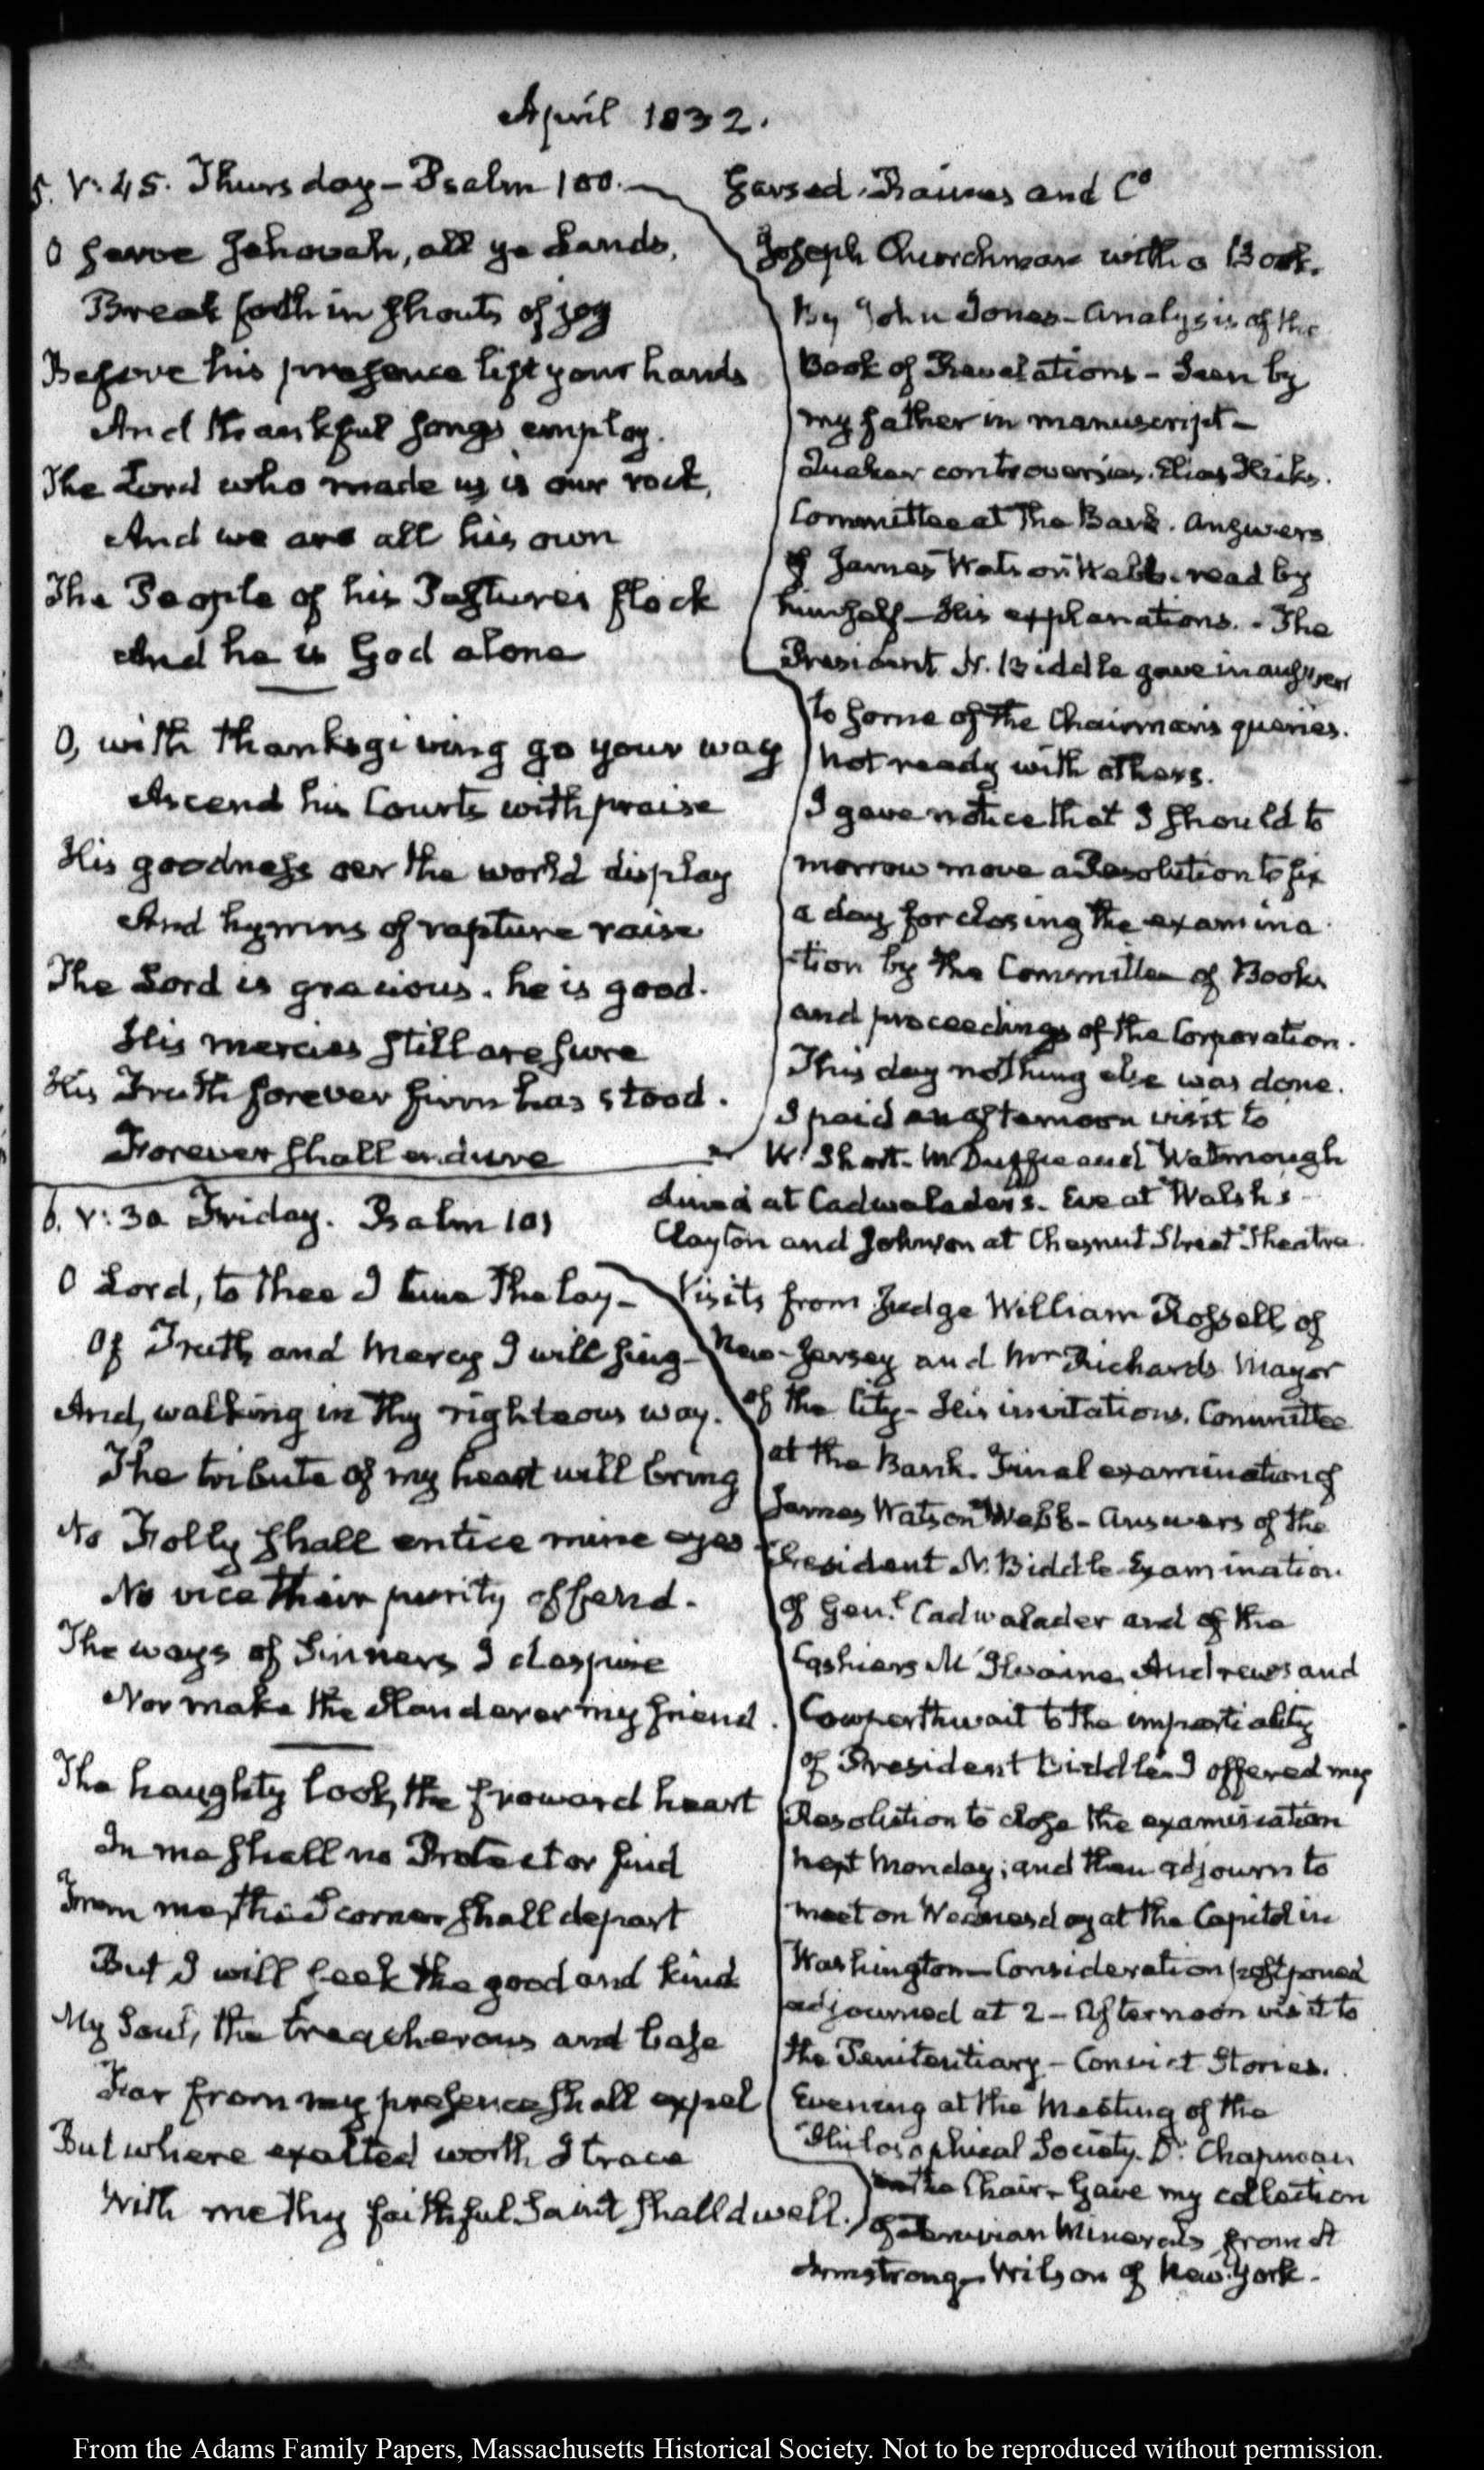 April 1832.
5. V: 45. Thursday - Psalm 100.
O serve Jehovah, all ye Lands,
Break forth in shouts of joy
Before his presence lift your hands
And thankful songs employ.
The Lord who made us is our rock,
And we are all his own
The People of his Pastures flock
And he is God alone
O, with thanksgiving go your way
Ascend his Courts with praise
His goodness oer the world display
And hymns of rapture raise
The Lord is gracious. he is good.
His mercies still are sure
His Truth forever firm has stood.
Forever shall endure
Garsed, Raines and Co
Joseph Churchman with a Book.
By John Jones - Analysis of the
Book of Revelations - Seen by
my father in manuscript -
Quaker controversies. Elias Hicks.
Committee at the Bank. Answers
of James Watson Webb. read by
himself - His explanations. - The
President N. Biddle gave in answers
to some of the Chairman's queries.
not ready with others.
I gave notice that I should to
morrow move a Resolution to fix
a day for closing the examina
-tion by the Committee of Books
and proceedings of the Corporation.
This day nothing else was done.
I paid an afternoon visit to
W. Short. McDuffie and Watmough
dined at Cadwaladers. Eve at Walsh's
Clayton and Johnson at Chesnut Street Theatre
6. V: 30 Friday. Psalm 101
O Lord, to thee I tune the lay -
Of Truth and Mercy I will sing -
And, walking in thy righteous way.
The tribute of my heart will bring
No Folly shall entice mine eyes -
No vice their purity offend.
The ways of Sinners I despise
Nor make the slanderer my friend.
The haughty look, the froward heart
In me shall no Protector find
From me, the Scorner shall depart
But I will seek the good and kind
My Soul, the treacherous and base
Far from my presence shall expel
But where exalted worth I trace
With me thy faithful Saint shall dwell.
Visits from Judge William Rossell, of
New-Jersey and Mr Richards Mayor
of the City - His invitations. Committee
at the Bank. Final examination of
James Watson Webb - Answers of the
President N. Biddle - Examination
of Genl. Cadwalader and of the
Cashiers McIlvaine, Andrews and
Cowperthwait to the impartiality
of President Biddle. I offered my
Resolution to close the examination
next Monday; and then adjourn to
meet on Wednesday at the Capitol in
Washington - Consideration postponed
adjourned at 2 - Afternoon visit to
the Penitentiary - Convict Stories.
Evening at the Meeting of the
Philosophical Society. Dr. Chapman
in the Chair - Gave my collection
of Peruvian Minerals from A
Armstrong - Wilson of New York -
From the Adams Family Papers, Massachusetts Historical Society. Not to be reproduced without permission.